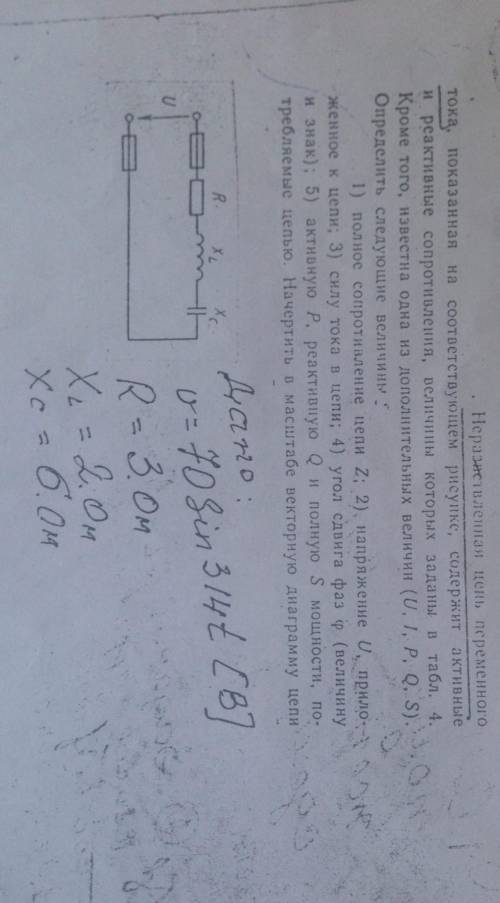 Неразветвленная цепь переменного
тока, показанная на соответствующем рисунке, содержит активные
и реактивные сопротивления, величины которых заданы в табл. 4.
Кроме того, известна одна из дополнительных величин (U, I, P, Q, S).
Определить следующие величины:
1) полное сопротивление цепи Z; 2) напряжение U, прило-
женное к цепи; 3) силу тока в цепи; 4) угол сдвига фаз φ (величину
и знак); 5) активную P, реактивную Q и полную S мощности, по-
требляемые цепью. Начертить в масштабе векторную диаграмму цепи
R XL XC
U
Дано:
U = 70 sin 314t [В]
R = 3.Ом
XL = 2.Ом
XC = 6.Ом